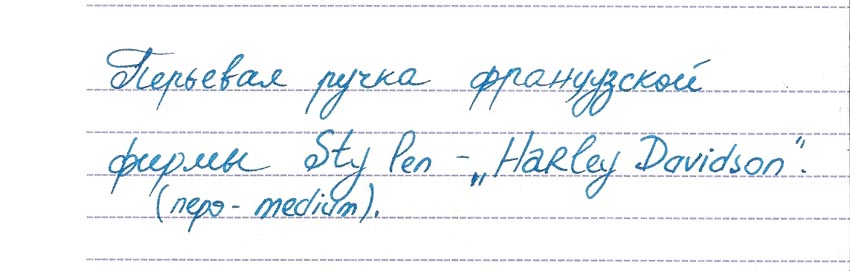 Перьевая ручка французской
фирмы Sty Pen - „Harley Davidson".
(перо - medium).